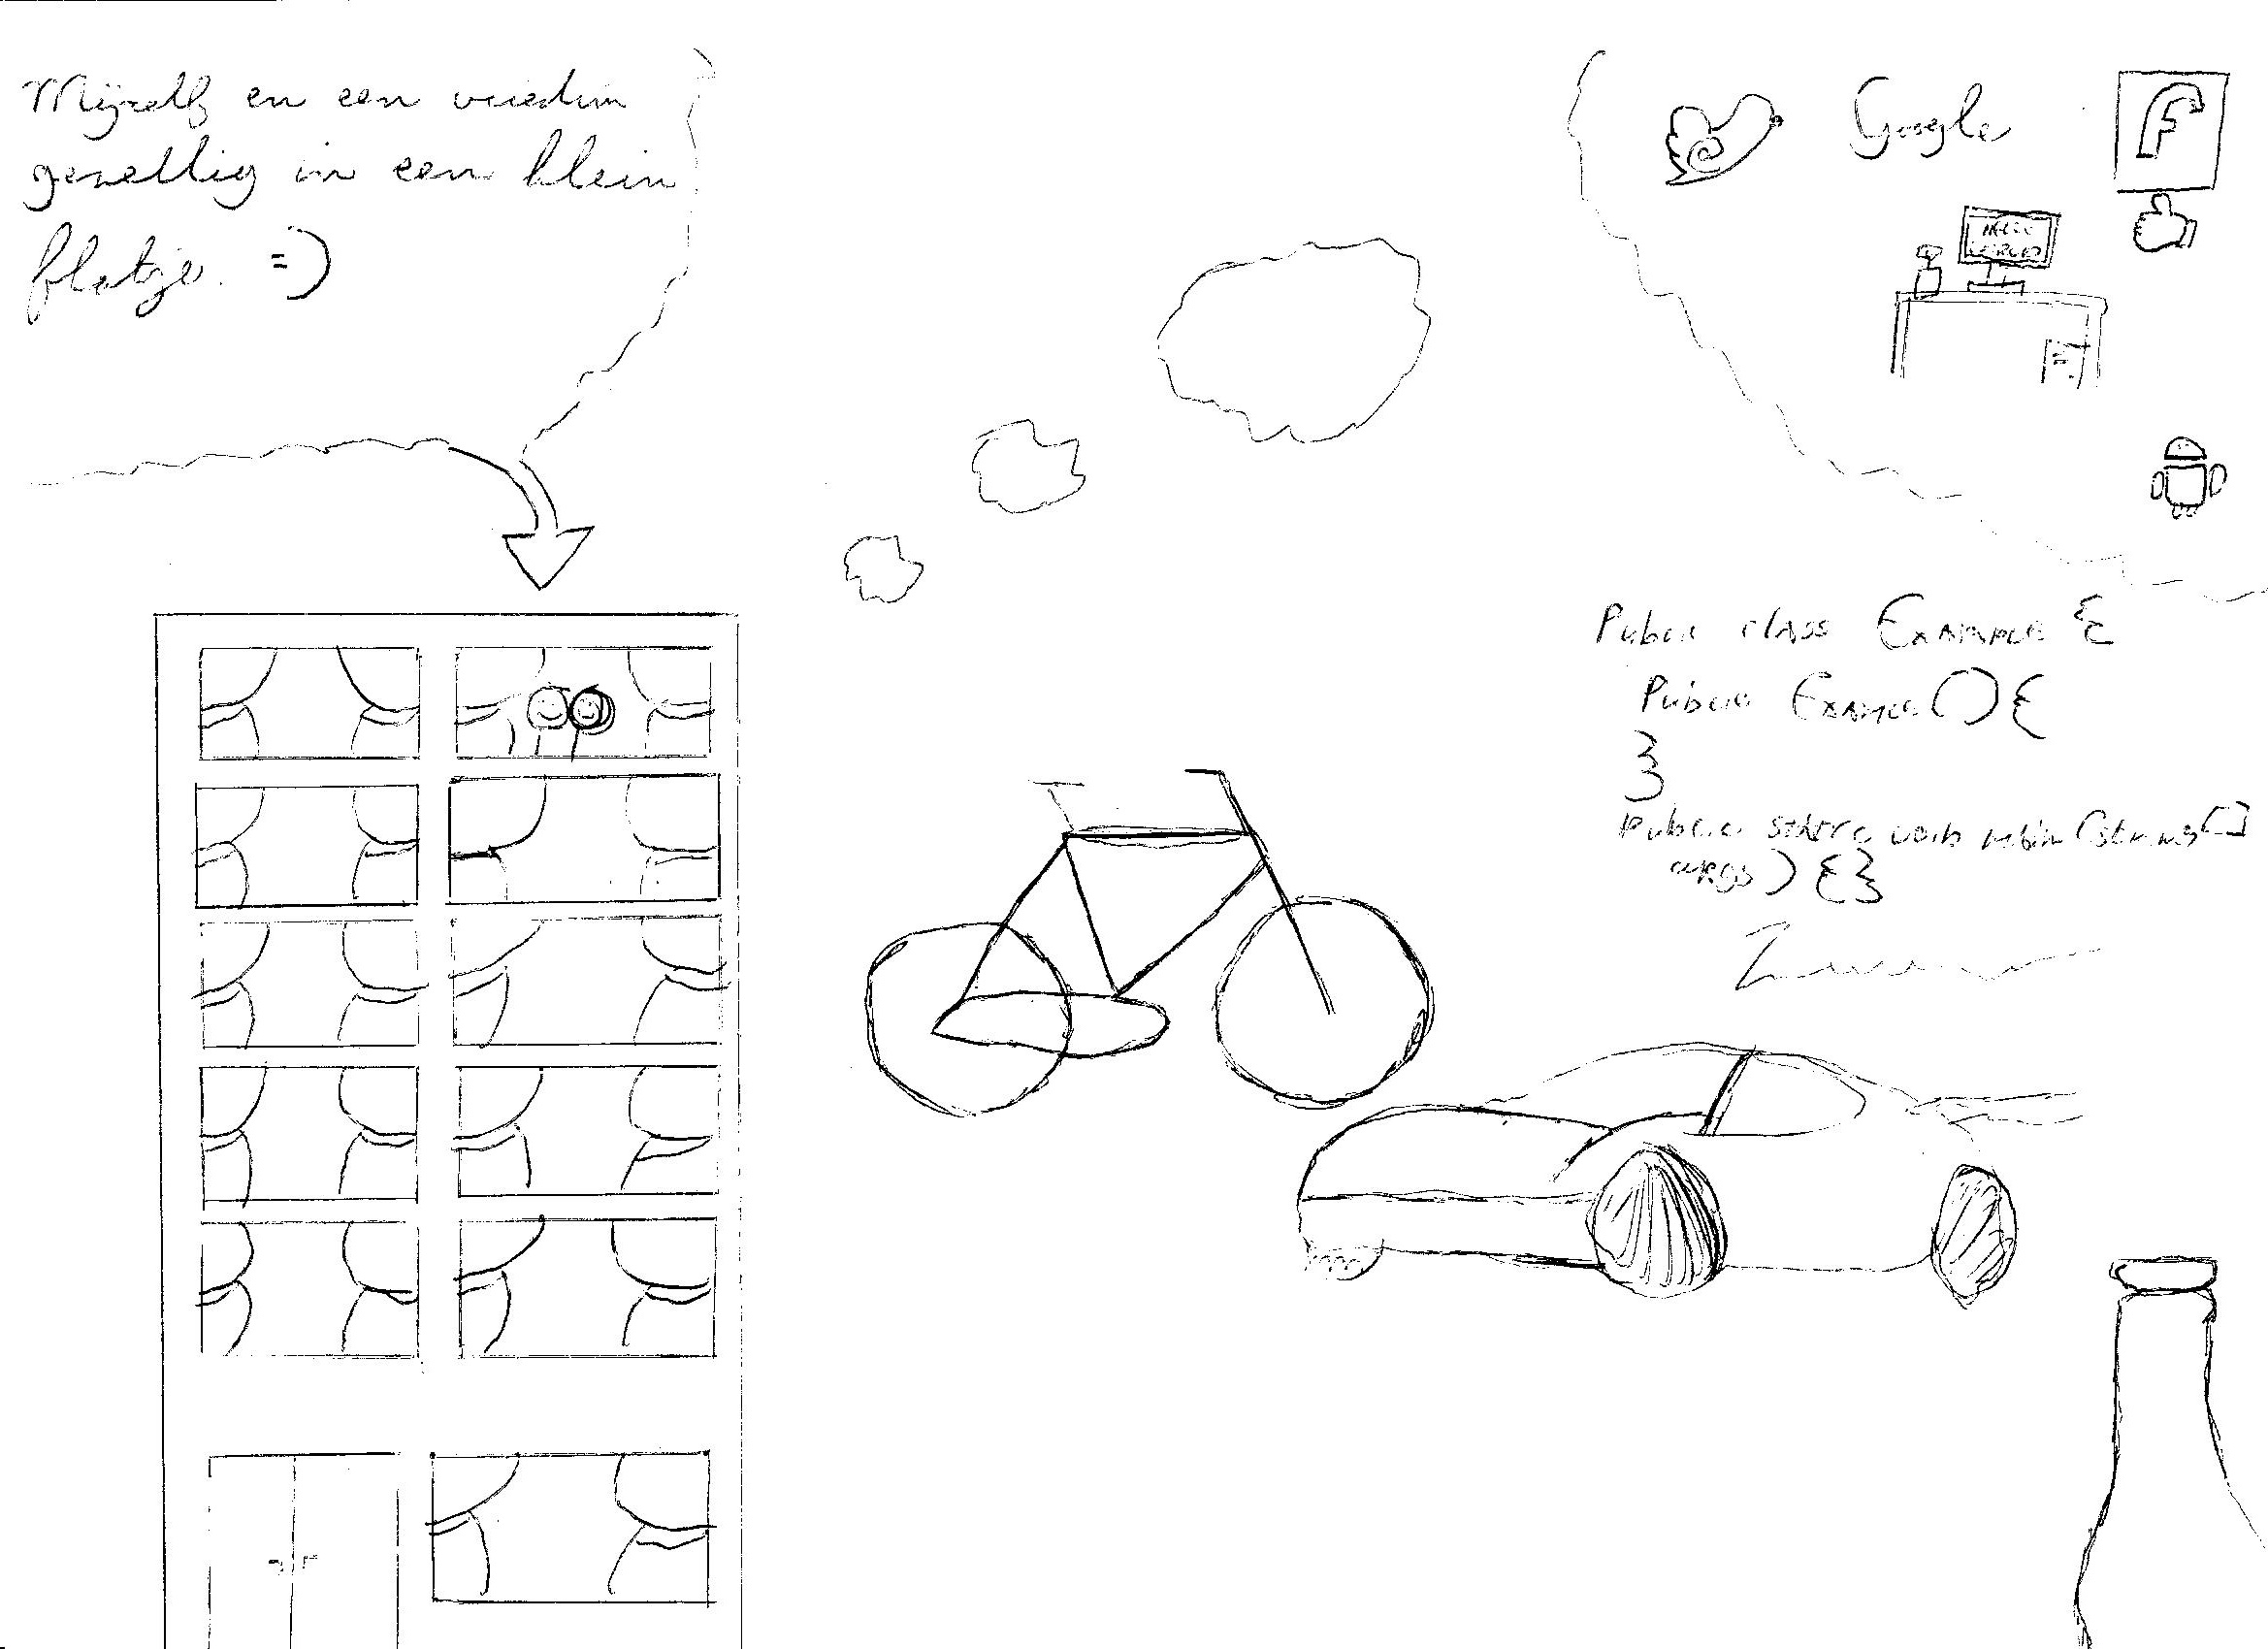 Mijzelf en een vriendin
gezellig in een klein
flatje. =)
Google
f
HELLO
WORLD
Public class Example {
Public Example() {
}
Public static void main (String[]
args) {}